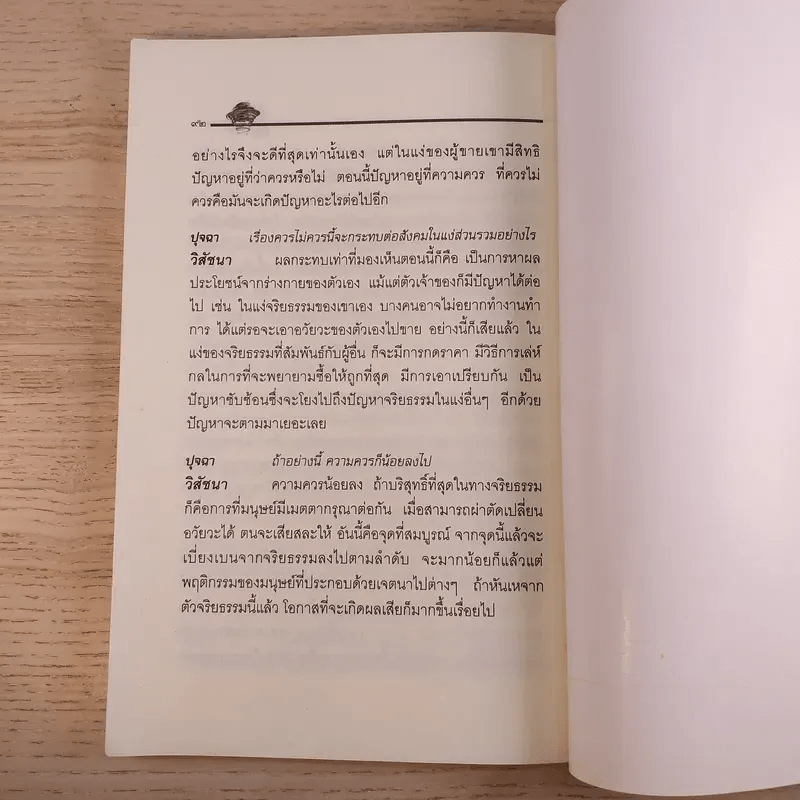 ๙๒
อย่างไรจึงจะดีที่สุดเท่านั้นเอง แต่ในแง่ของผู้ขายเขามีสิทธิ
ปัญหาอยู่ที่ว่าควรหรือไม่ ตอนนี้ปัญหาอยู่ที่ความควร ที่ควรไม่
ควรคือมันจะเกิดปัญหาอะไรต่อไปอีก
ปุจฉา เรื่องควรไม่ควรนี้จะกระทบต่อสังคมในแง่ส่วนรวมอย่างไร
วิสัชนา ผลกระทบเท่าที่มองเห็นตอนนี้ก็คือ เป็นการหาผล
ประโยชน์จากร่างกายของตัวเอง แม้แต่ตัวเจ้าของก็มีปัญหาได้ต่อ
ไป เช่น ในแง่จริยธรรมของเขาเอง บางคนอาจไม่อยากทำงานทำ
การ ได้แต่รอจะเอาอวัยวะของตัวเองไปขาย อย่างนี้ก็เสียแล้ว ใน
แง่ของจริยธรรมที่สัมพันธ์กับผู้อื่น ก็จะมีการกดราคา มีวิธีการเล่ห์
กลในการที่จะพยายามซื้อให้ถูกที่สุด มีการเอาเปรียบกัน เป็น
ปัญหาซับซ้อนซึ่งจะโยงไปถึงปัญหาจริยธรรมในแง่อื่นๆ อีกด้วย
ปัญหาจะตามมาเยอะเลย
ปุจฉา ถ้าอย่างนี้ ความควรก็น้อยลงไป
วิสัชนา ความควรน้อยลง ถ้าบริสุทธิ์ที่สุดในทางจริยธรรม
ก็คือการที่มนุษย์มีเมตตากรุณาต่อกัน เมื่อสามารถผ่าตัดเปลี่ยน
อวัยวะได้ ตนจะเสียสละให้ อันนี้คือจุดที่สมบูรณ์ จากจุดนี้แล้วจะ
เบี่ยงเบนจากจริยธรรมลงไปตามลำดับ จะมากน้อยก็แล้วแต่
พฤติกรรมของมนุษย์ที่ประกอบด้วยเจตนาไปต่างๆ ถ้าหันเหจาก
ตัวจริยธรรมนี้แล้ว โอกาสที่จะเกิดผลเสียก็มากขึ้นเรื่อยไป